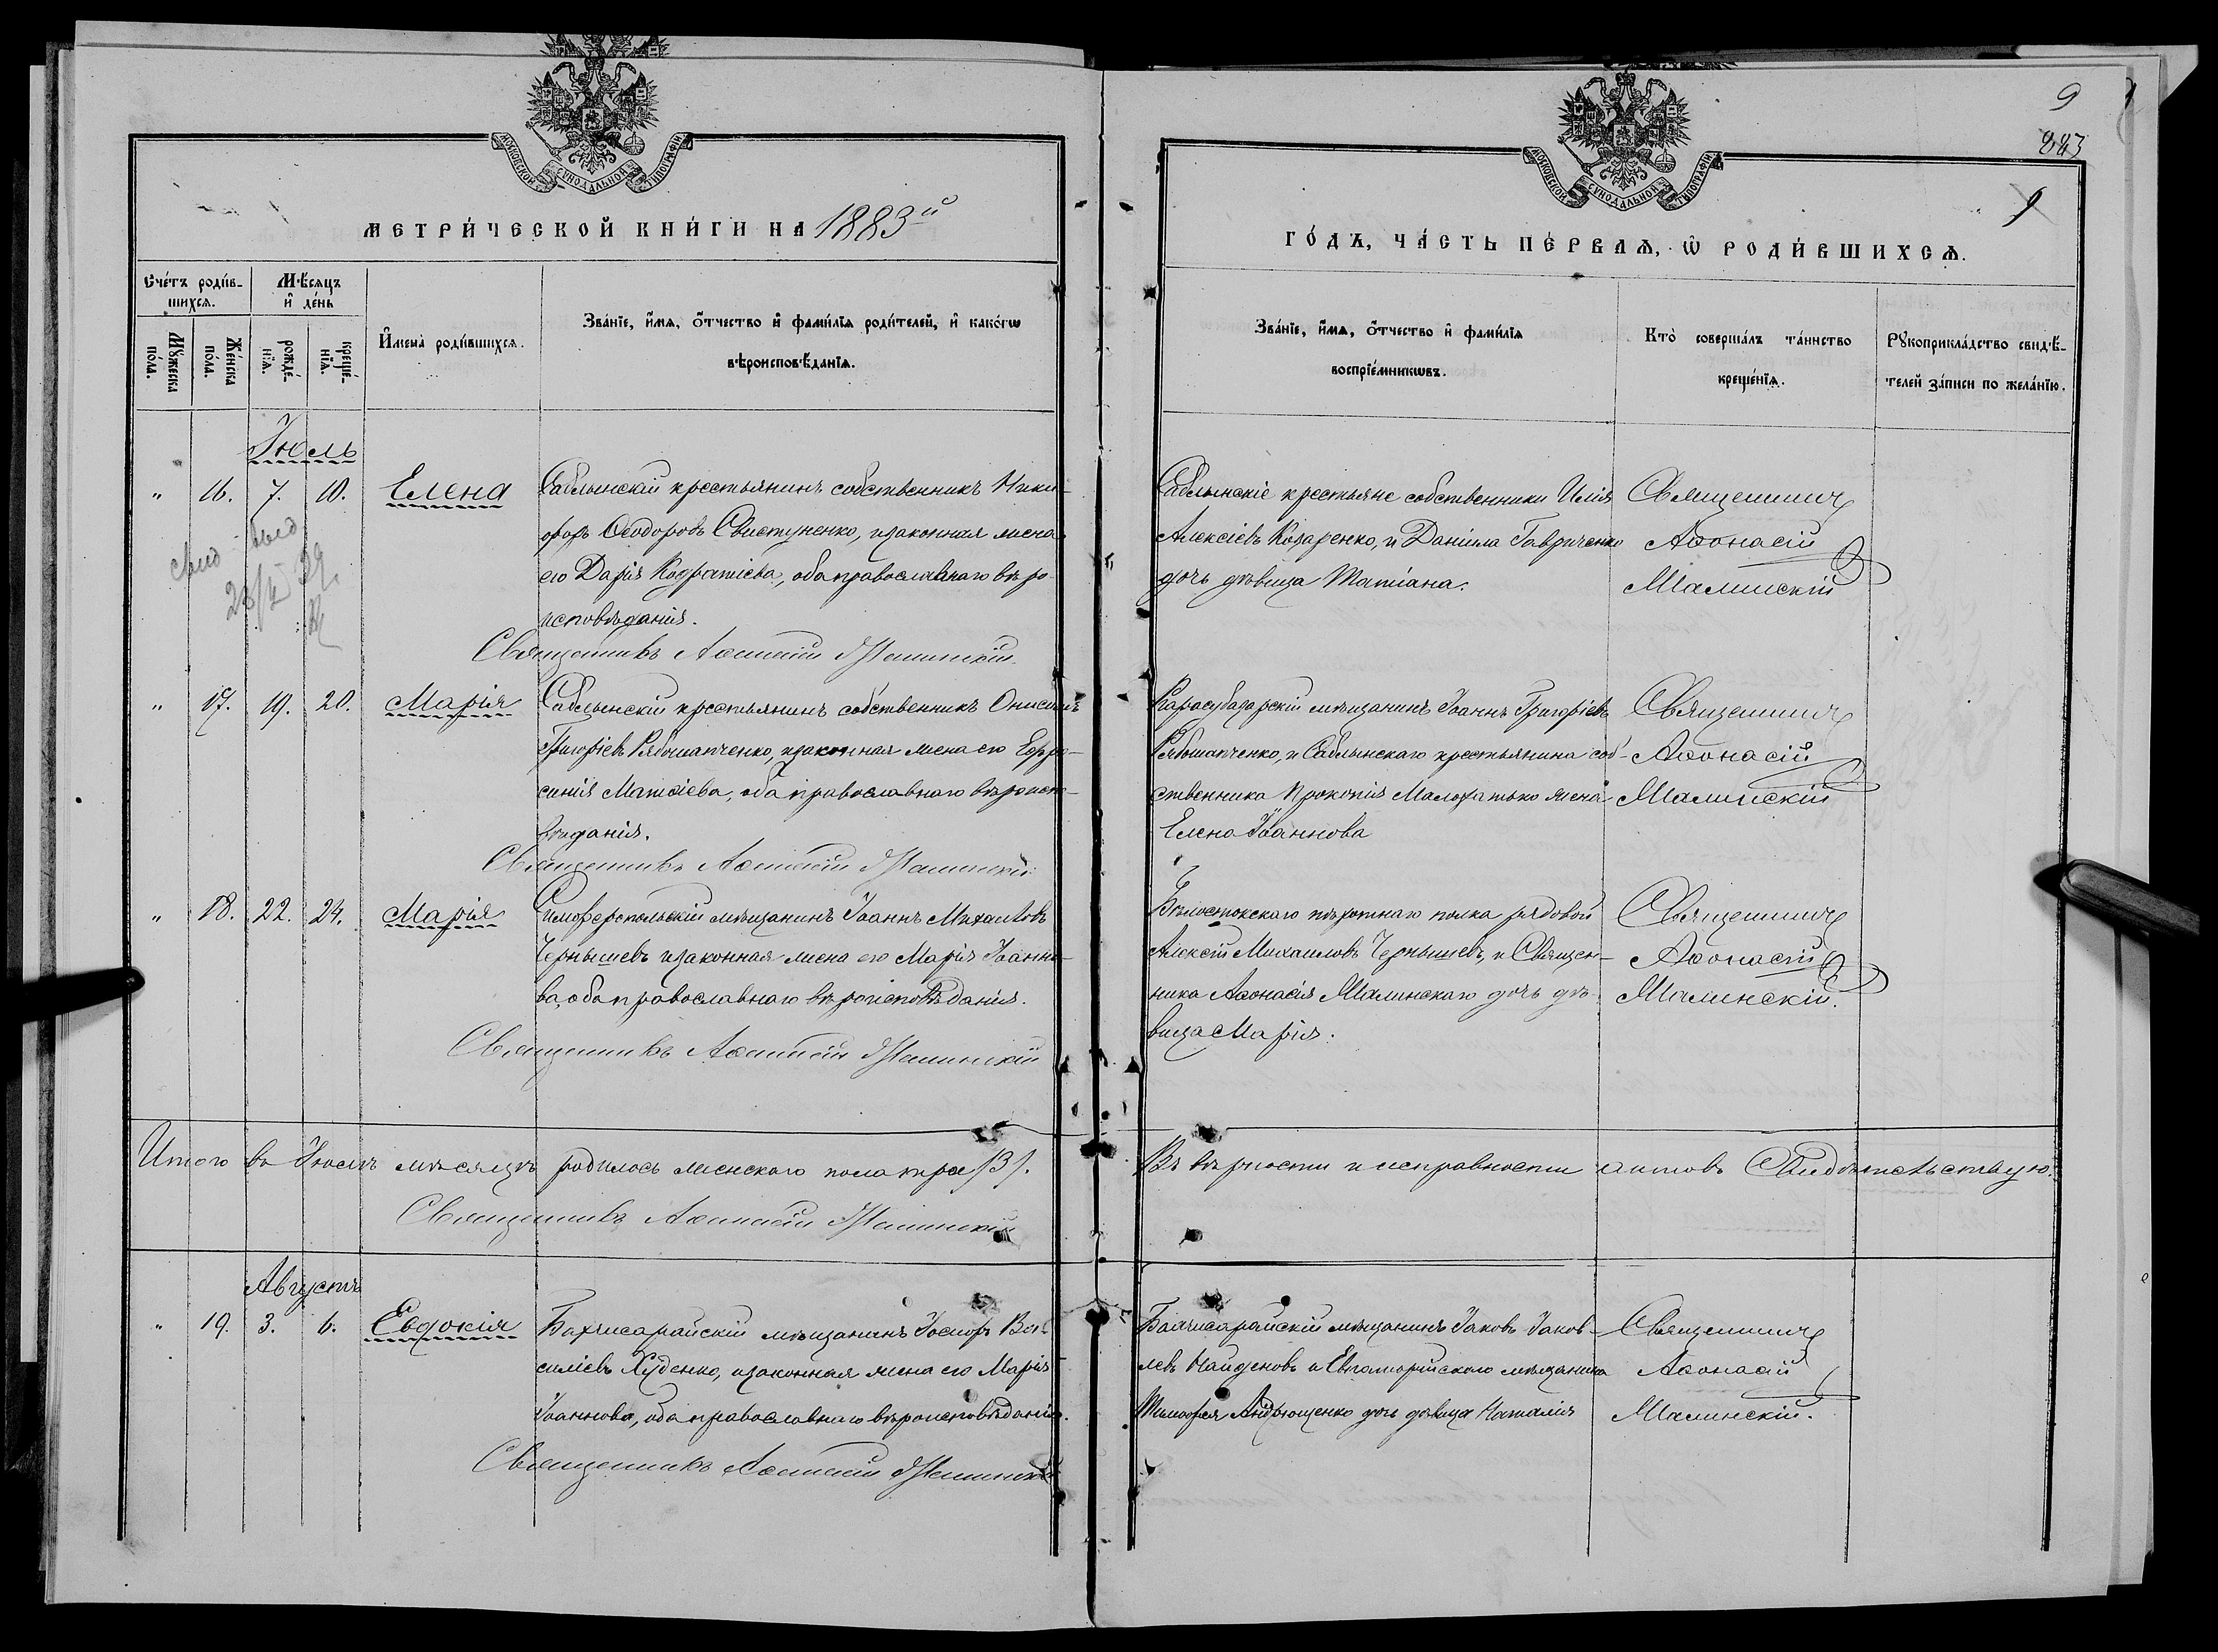 МОСКОВСКОЙ СУНОДАЛЬНОЙ ТИПОГРАФІИ
МЕТРИ́ЧЕСКОЙ КНИ́ГИ НА 1883й
Сче́тъ роди́в-
шихся.
Мѣ́сяцъ
и҆ де́нь
Мꙋ́жеска
по́ла.
Же́нска
по́ла.
рожде́-
нїѧ.
креще́-
нїѧ.
И҆мена̀ роди́вшихся.
Зва́нїе, и҆́мѧ, ѻ҆́тчество и҆ фами́лїѧ роди́телей, и҆ како́гѡ
вѣроисповѣ́данїѧ.
Іюль
" 16. 7. 10. Елена
Саблынскій крестьянинъ собственникъ Ники-
форъ Ѳеодоровъ Свистуненко, изаконная жена
его Дарія Кодратіева, оба православнаго вѣро-
исповѣданія.
Священникъ Аѳанасій Малинскій
" 17. 19. 20. Марія
Саблынскій крестьянинъ собственникъ Онисимъ
Григоріевъ Рябошапченко, изаконная жена его Евфро-
синія Матѳіева, оба православнаго вѣроиспо-
вѣданія.
Священникъ Аѳанасій Малинскій
" 18. 22. 24. Марія
Симферопольскій мѣщанинъ Іоаннъ Михаиловъ
Чернышевъ изаконная жена его Марія Іоанно-
ва, оба православнаго вѣроисповѣданія.
Священникъ Аѳанасій Малинскій
Итого въ Іюлѣ мѣсяцѣ родилось женскаго пола три /3/.
Священникъ Аѳанасій Малинскій
Августъ
" 19. 3. 6. Евдокія
Бахчисарайскій мѣщанинъ Іосифъ Ва-
силіевъ Худенко, изаконная жена его Марія
Іоаннова, оба православнаго вѣроисповѣданія.
Священникъ Аѳанасій Малинскій
9
243
9
МОСКОВСКОЙ СУНОДАЛЬНОЙ ТИПОГРАФІИ
ГО́ДЪ, ЧА́СТЬ ПЕ́РВАѦ, Ѡ҆ РОДИ́ВШИХСѦ.
Зва́нїе, и҆́мѧ, ѻ҆́тчество и҆ фами́лїѧ
воспрїе́мникѡвъ.
Кто̀ соверша́лъ та́инство
креще́нїѧ.
Рꙋкоприкла́дство свидѣ́-
телей за́писи по жела́нїю.
Саблынскіе крестьяне собственники Илія
Алексіевъ Козаренко, и Даніила Гавриченко
дочь дѣвица Татіана.
Священникъ
Аѳонасій
Малинскій
Карасубазарскій мѣщанинъ Іоаннъ Григоріевъ
Рябошапченко, и Саблынскаго крестьянина соб-
ственника Прокопія жена
Елена Іоаннова
Священникъ
Аѳонасій
Малинскій
Бѣлостокскаго пѣхотнаго полка рядовой
Алексѣй Михаиловъ Чернышевъ, и Священ-
ника Аѳонасія Малинскаго дочь дѣ-
вица Марія.
Священникъ
Аѳонасій
Малинскій.
Въ вѣрности и исправности актовъ Свидѣтельствую.
Бахчисарайскій мѣщанинъ Іаковъ Іаков-
левъ Найденовъ и Евпаторійскаго мѣщанина
Тимофея Андрющенко дочь дѣвица Наталія
Священникъ
Аѳонасій
Малинскій.